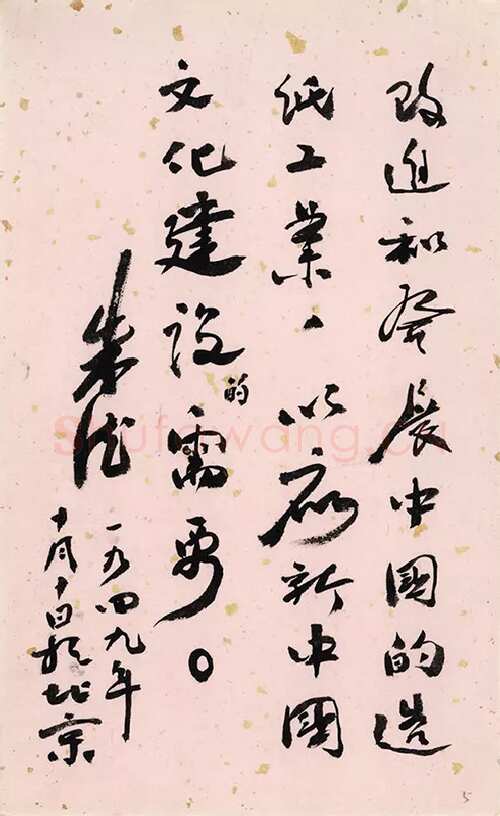 改進和發展中國的造
纸工業、以應新中國
文化建設的需要。
朱德
一九四九年
十月十日於北京
Shufawang.cn
5